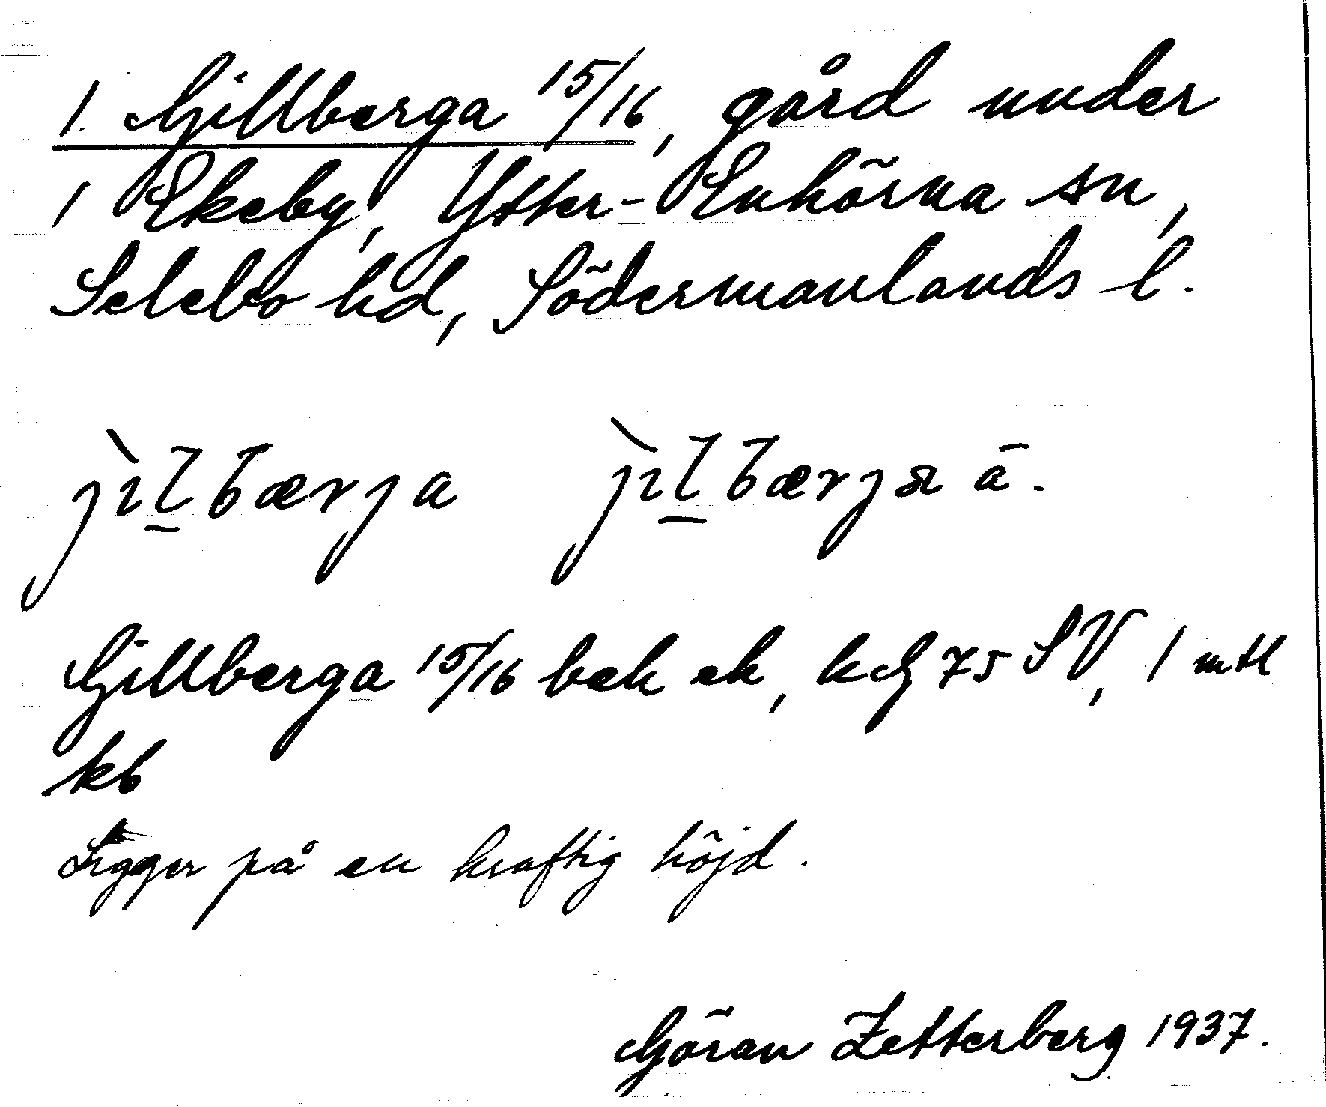 1. Gillberga 15/16, gård under
1 Ekeby, Ytter-Enhörna sn,
Selebo hd, Södermanlands l.
jìl̲bærja jìl̲bærjaā.
Gillberga 15/16 bek ek, kG 75 SV, 1 mtl
kb
Ligger på en kraftig höjd.
Göran Zetterberg 1937.